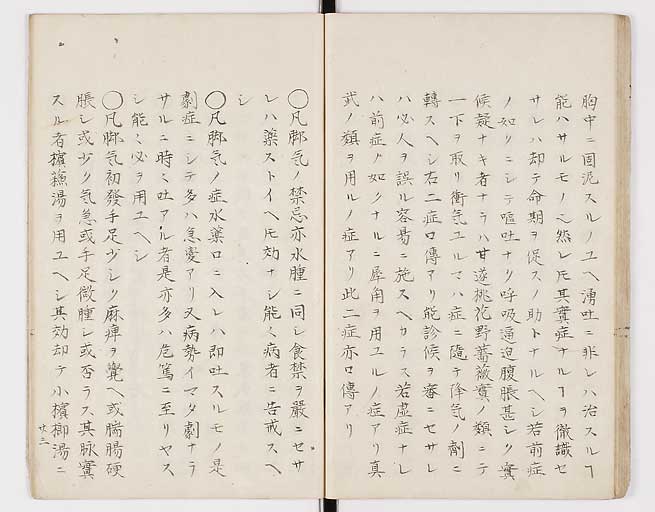 胸中ニ固泥スルノユヘ湧吐ニ非レハ治スルヿ
能ハサルモノ乀然レ𪜈其實症ナルヿヲ徹識セ
サレハ却テ命期ヲ促スノ助トナルヘシ若前症
ノ如クニシテ嘔吐ナク呼吸逼迫腹脹甚シク實
候疑ナキ者ナラハ甘遂桃花野薔薇實ノ類ニテ
一下ヲ取リ衝気ユルマハ症ニ隨テ降気ノ劑ニ
轉スヘシ右二症口傳アリ能診候ヲ審ニセサレ
ハ必人ヲ誤ル容易ニ施スヘカラス若虚症ナレ
ハ前症ノ如クナルニ犀角ヲ用ユルノ症アリ真
武ノ類ヲ用ルノ症アリ此二症亦口傳アリ
○凡脚気ノ禁忌亦水腫ニ同シ食禁ヲ嚴ニセサ
レハ藥ストイヘ𪜈効ナシ能〻病者ニ告戒スヘ
シ
○凡脚気ノ症水藥口ニ入レハ即吐スルモノ是
劇症ニシテ多ハ急変アリ又病勢イマタ劇ナラ
サルニ時〻吐アル者是亦多ハ危篤ニ至リヤス
シ能〻心ヲ用ユヘシ
○凡脚気初發手足少シク麻痺ヲ覺ヘ或腨腸硬
脹シ或少ク気急或手足微腫シ或否ラス其脉實
スル者檳蘓湯ヲ用ユヘシ其効却テ小檳榔湯ニ
廿三